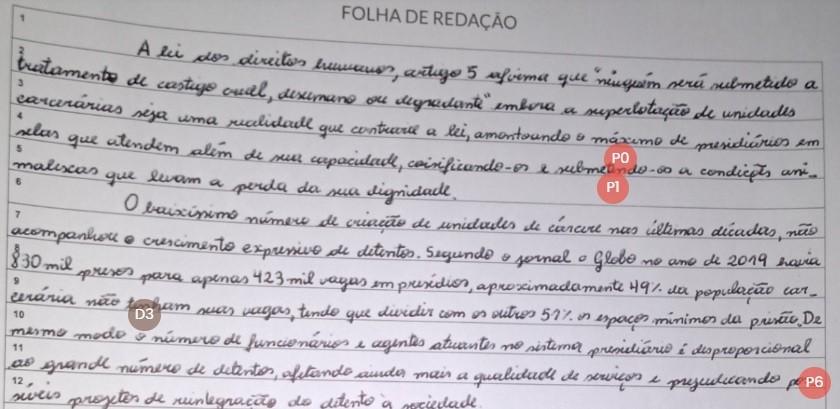 FOLHA DE REDAÇÃO
1
A lei dos direitos humanos, artigo 5 afirma que "ninguém será submetido a
2 tratamento de castigo cruel, desumano ou degradante" embora a superlotação de unidades
3 carcerárias seja uma realidade que contraria a lei, amontoando o máximo de presidiários em
4 selas que atendem além de sua capacidade, coisificando-os e submetendo-os a condições ani-
5 malescas que levam a perda da sua dignidade.
6 O baixíssimo número de criação de unidades de cárcere nas últimas décadas, não
7 acompanhou o crescimento expressivo de detentos. Segundo o jornal o Globo no ano de 2019 havia
8 830 mil presos para apenas 423 mil vagas em presídios, aproximadamente 49% da população car-
9 cerária não tinham suas vagas, tendo que dividir com os outros 51% os espaços mínimos da prisão. De
10 mesmo modo o número de funcionários e agentes atuantes no sistema presidiário é desproporcional
11 ao grande número de detentos, afetando ainda mais a qualidade de serviços e prejudicando
12 síveis projetos de reintegração do detento à sociedade.
P0
P1
D3
P6